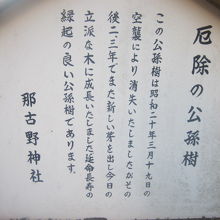 厄除の公孫樹
この公孫樹は昭和二十年三月十九日の
空襲により消失いたしましたがその
後二、三年でまた新しい芽を出し今日の
立派な木に成長いたしました延命長寿の
縁起の良い公孫樹であります。
那古野神社